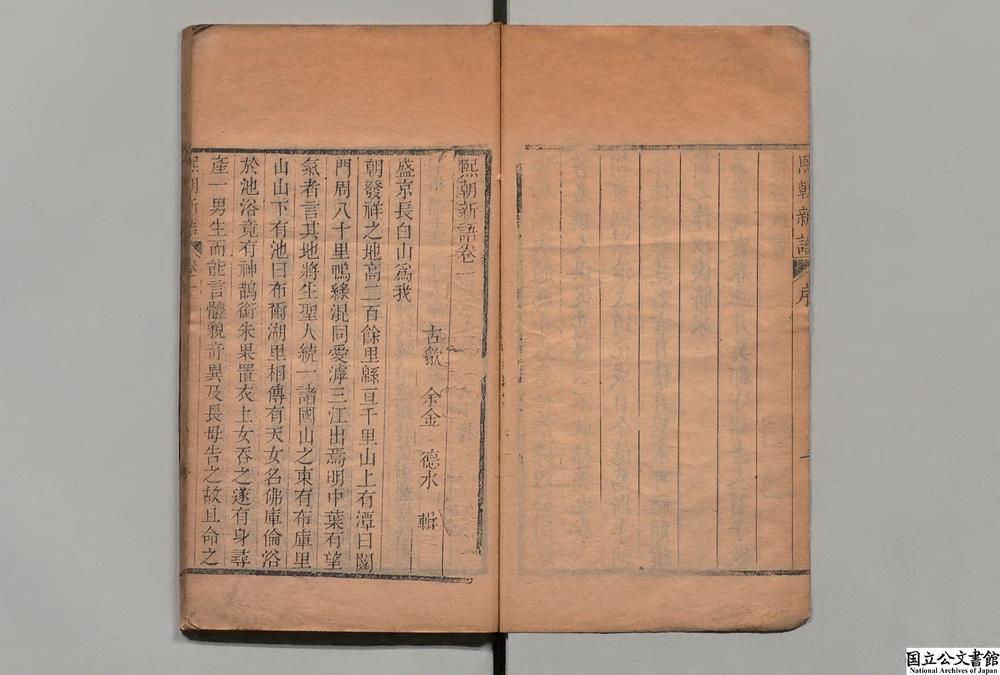 熙朝新語 序
熙朝新語卷一
古歙 余金 德水 輯
盛京長白山爲我
朝發祥之地高二百餘里緜亘千里山上有潭曰闥
門周八十里鴨綠混同愛滹三江出焉明中葉有望
氣者言其地將生聖人統一諸國山之東有布庫里
山山下有池曰布爾湖里相傳有天女名佛庫倫浴
於池浴竟有神鵲銜朱果置衣上女吞之遂有身尋
產一男生而能言體貌奇異及長母告之故且命之
熙朝新語 卷一
国立公文書館
National Archives of Japan